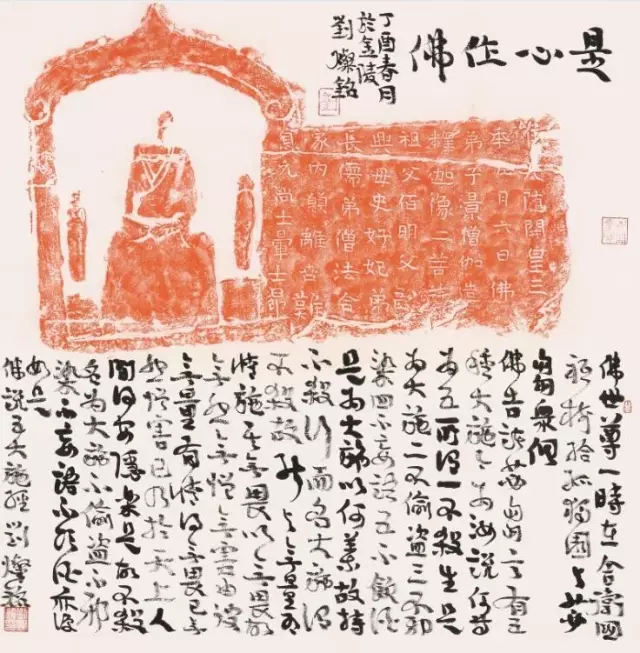 是心作佛
丁酉春月
於金陵
劉燦銘
大隋開皇三
年月六日佛
弟子景僧伽造
釋迦像二菩
祖父伯明父
興母史好妃弟
長儒弟僧法合
家內願離苦難
息元尚士暈士昂莫
佛世尊一時在舍衛國
祇樹給孤獨園與苾
芻衆俱
佛告諸苾芻言有五
種大施今為汝說何等
為五所謂一不殺生是
為大施二不偷盜三不邪
染四不妄語五不飲酒
是為大施以何義故持
不殺行而名大施謂
不殺故能與無量有
情施其無畏以無畏故
無怨無憎無害由彼
無量有情得無畏已無
怨憎害已乃於天上人
間得安隱樂是故不殺
名為大施不偷盜不邪
染不妄語不飲酒亦復
如是
佛說五大施經 劉燦銘